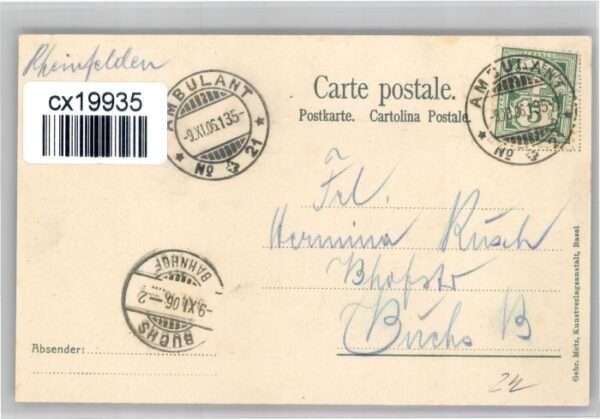 Rheinfelden
cx19935
AMBULANT
-9.XI.06.135-
No 21
Carte postale.
Postkarte. Cartolina Postale.
AMBULANT
5
No 21
Frl.
Hermina Rusch
Bhofstr
Buchs B
BUCHS
-9.XI.06.-2
BAHNHOF
Absender:
Gebr. Metz, Kunstverlagsanstalt, Basel
24